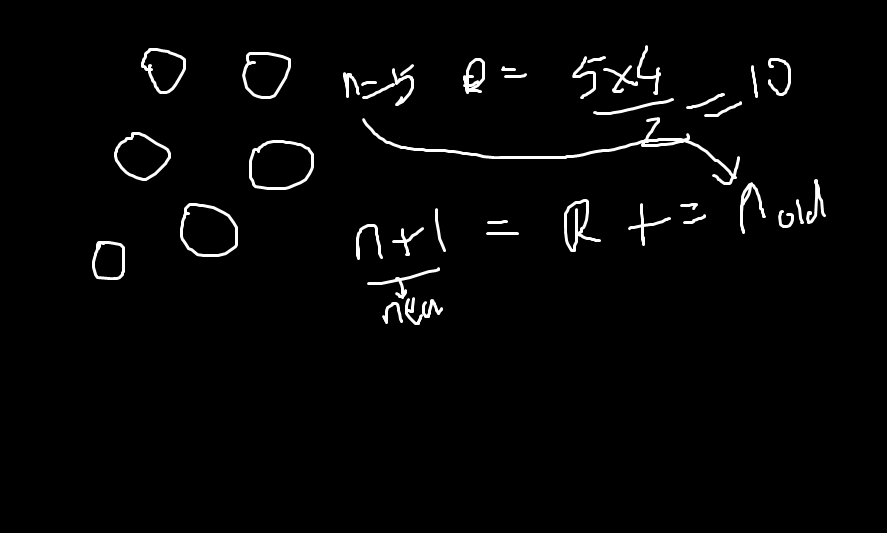 n=5 R = 5x4/2 = 10
n+1 = R += n old
new